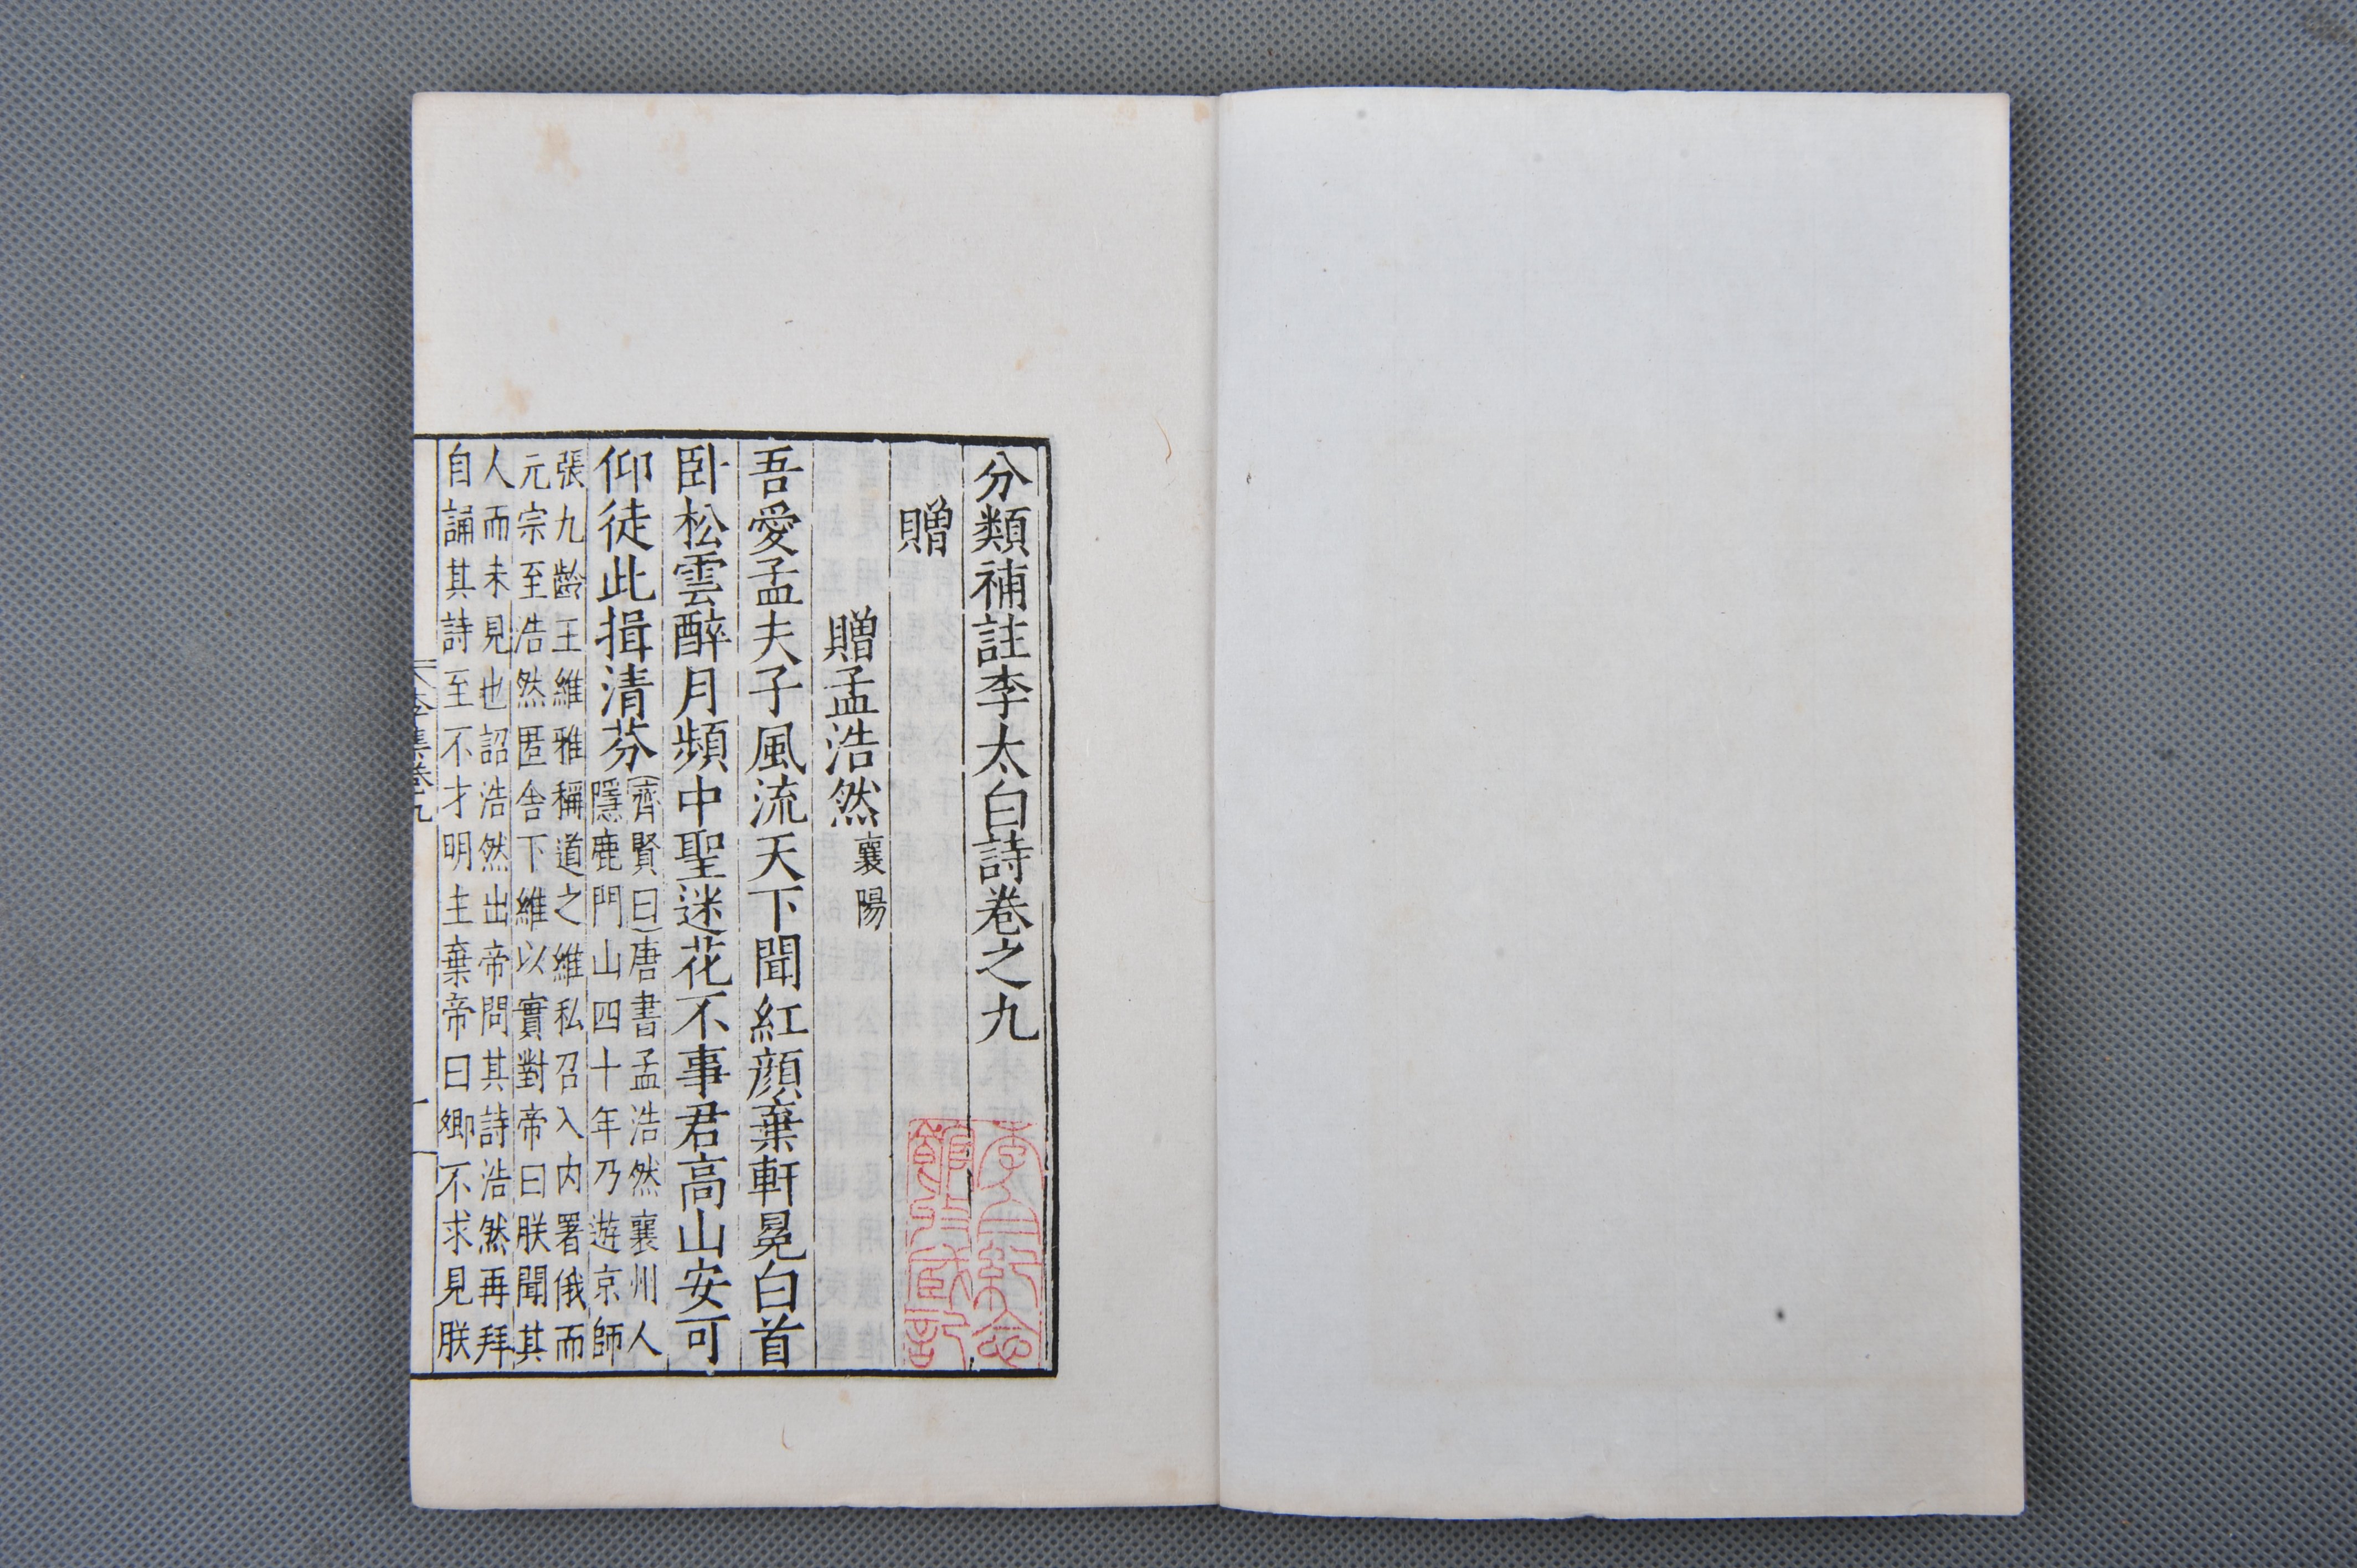 分類補註李太白詩卷之九
贈
贈孟浩然襄陽
吾愛孟夫子風流天下聞紅顔棄軒冕白首
卧松雲醉月頻中聖迷花不事君高山安可
仰徒此揖清芬
齊賢曰唐書孟浩然襄州人
隱鹿門山四十年乃遊京師
張九齡王維雅稱道之維私召入内署俄而
元宗至浩然匿舍下維以實對帝曰朕聞其
人而未見也詔浩然出帝問其詩浩然再拜
自誦其詩至不才明主棄帝曰卿不求見朕
李集卷九
一